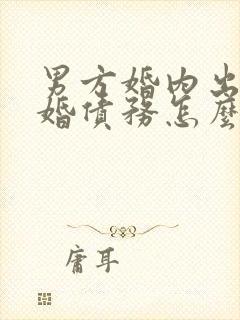 男方婚内出
婚债务怎麼
庸耳